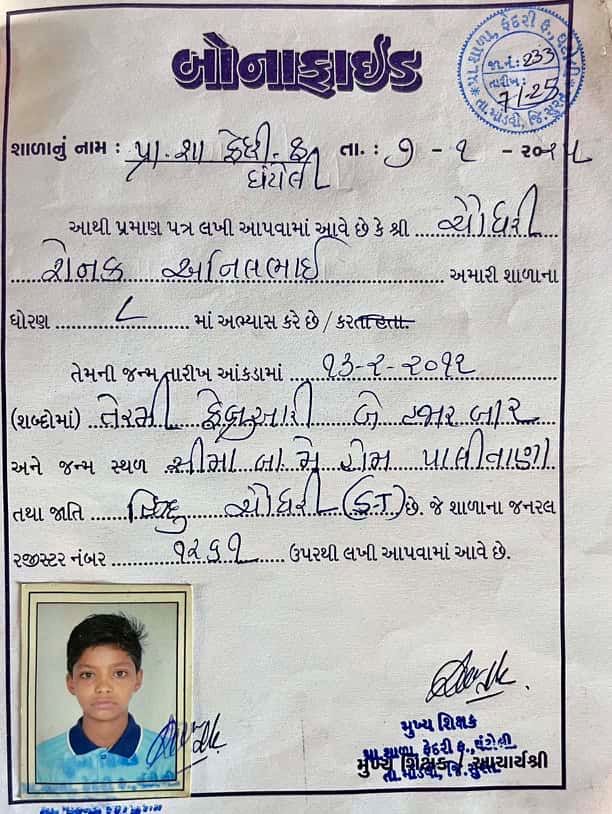 બોનાફાઈડ
પ્રા.શાળા, ફેદરી ફ.,
જા.નં.: 233
તારીખ:
7/1-25
તા.માંડવી, જિ.સુરત
શાળાનું નામ : પ્રા. શા ફેદરી. ફ તા. : ૭ - ૧ - ૨૦૨૫
આથી પ્રમાણ પત્ર લખી આપવામાં આવે છે કે શ્રી ચૌધરી
રોનક અનિલભાઈ અમારી શાળાના
ધોરણ ૮ માં અભ્યાસ કરે છે / કરતા હતા.
તેમની જન્મ તારીખ આંકડામાં ૧૩-૨-૨૦૧૨
(શબ્દોમાં) તેરમી ફેબ્રુઆરી બે હજાર બાર
અને જન્મ સ્થળ હોમ પાલીતાણા
તથા જાતિ હિન્દુ ચૌધરી (S.T) છે. જે શાળાના જનરલ
રજીસ્ટર નંબર ૧૨૬૧ ઉપરથી લખી આપવામાં આવે છે.
મુખ્ય શિક્ષક
પ્રા.શાળા, ફેદરી ફ.,
મુખ્ય શિક્ષક / આચાર્યશ્રી
તા.માંડવી, જિ.સુરત.